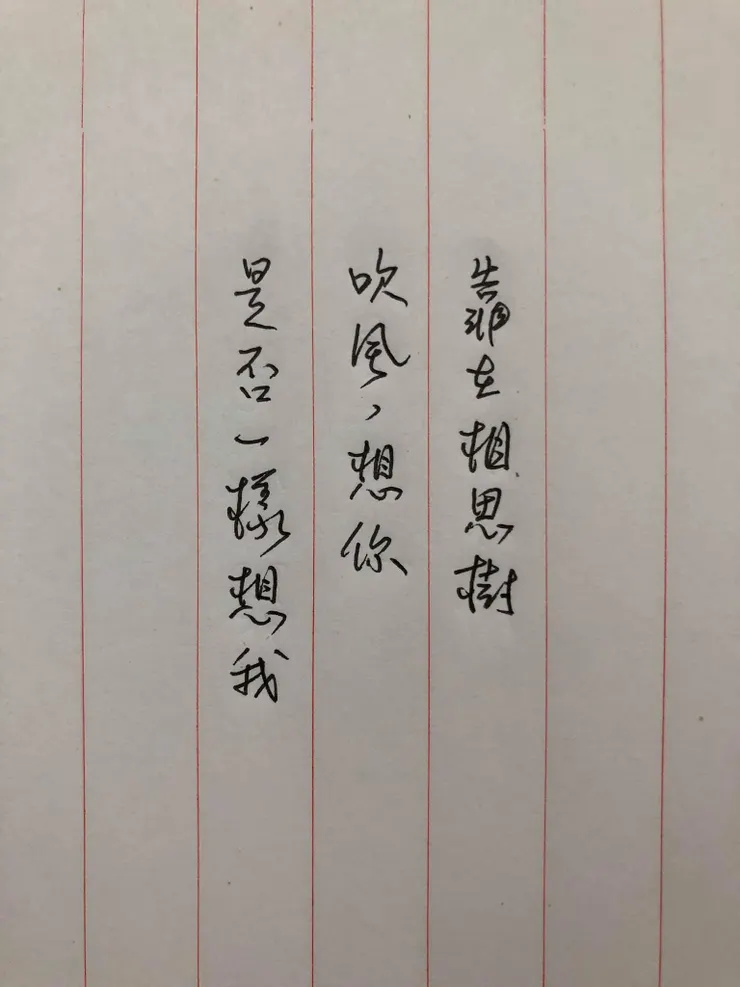 靠在相思樹
吹風，想你
是否一樣想我